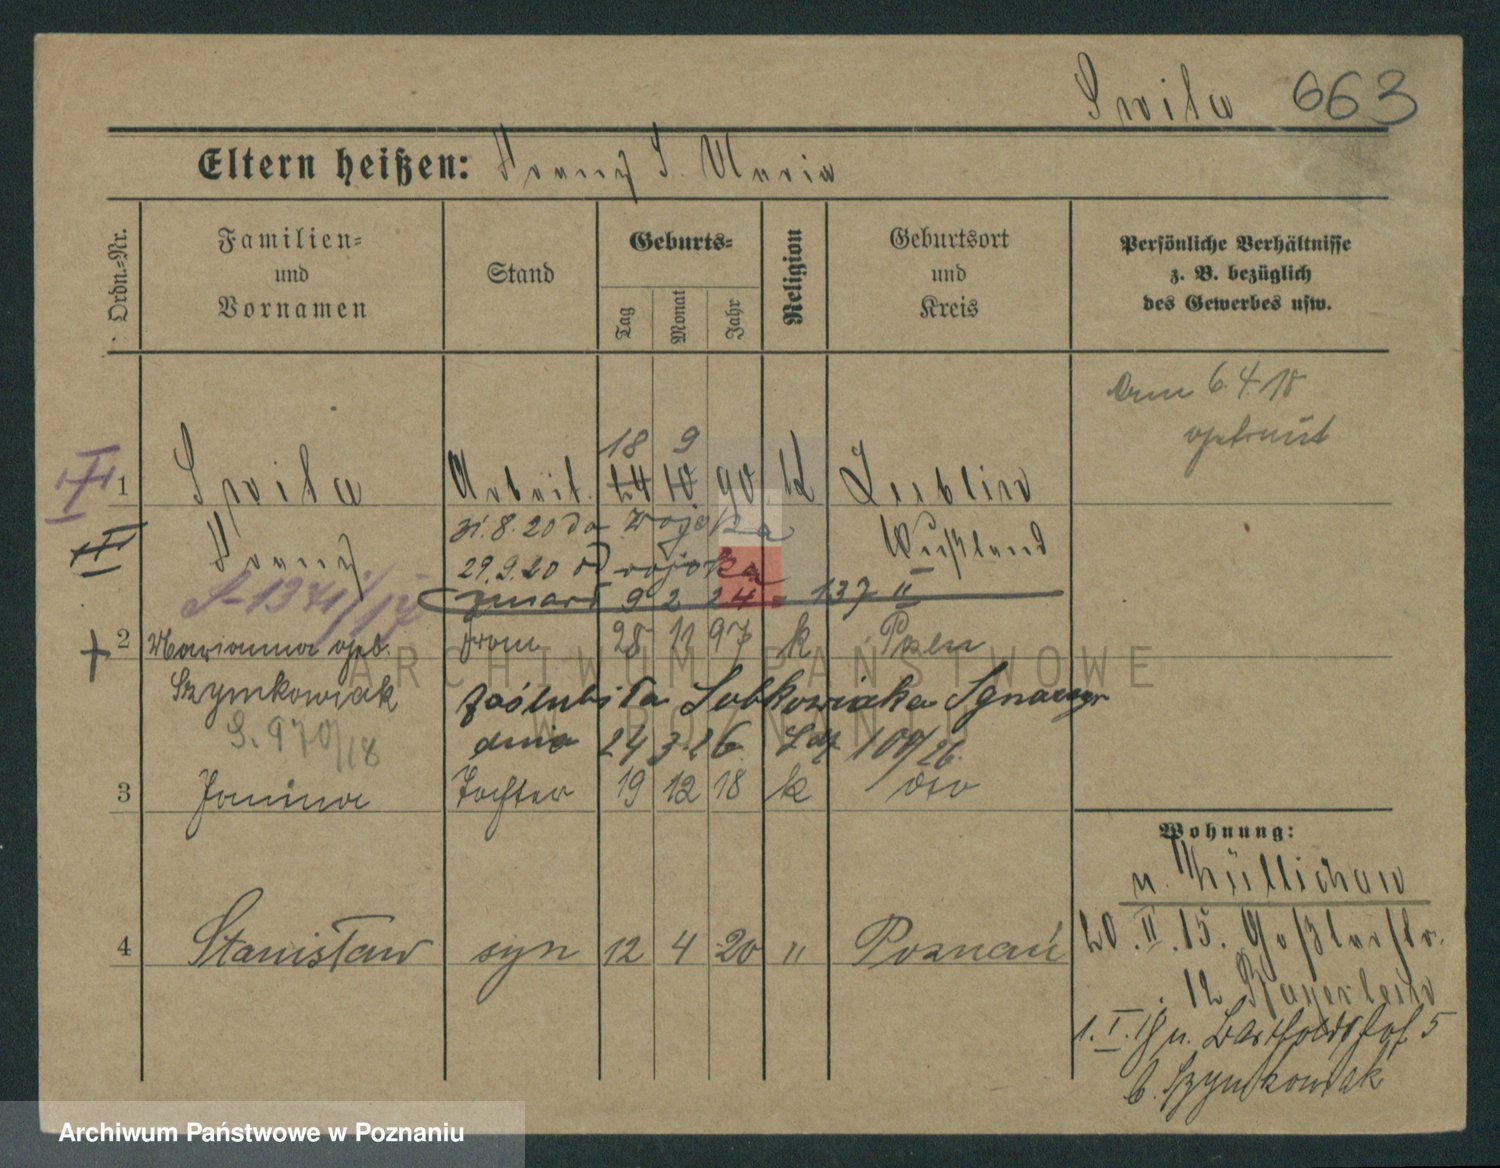 Swila 663
Eltern heißen: Franz S. Maria
Ordn.-Nr.
Familien-
und
Vornamen
Stand
Geburts-
Tag
Monat
Jahr
Religion
Geburtsort
und
Kreis
Persönliche Verhältnisse
z. B. bezüglich
des Gewerbes usw.
6.4.18
getraut
18 9
1 Swila Arbeit. 24 10 90 K Lublin
31.8.20 do wojska
Franz Rußland
29.9.20 od wojska
S-1371/17 zmarł 9 2 24 = 137 II
2 Marianna geb. Frau 28 11 97 k Posen
Szymkowiak zaślubiła Sobkowiaka Ignacego
S. 970/18 dnia 24 3. 26. 109/26.
3 Janina Tochter 19 12 18 k dto
Wohnung:
n. Züllichau
4 Stanisław syn 12 4 20 " Poznań
20.II.15. Goßlerstr.
12 Bayerlein
1.I.18 n. Bartholdshof 5
b. Szymkowiak
ARCHIWUM PAŃSTWOWE
W POZNANIU
Archiwum Państwowe w Poznaniu